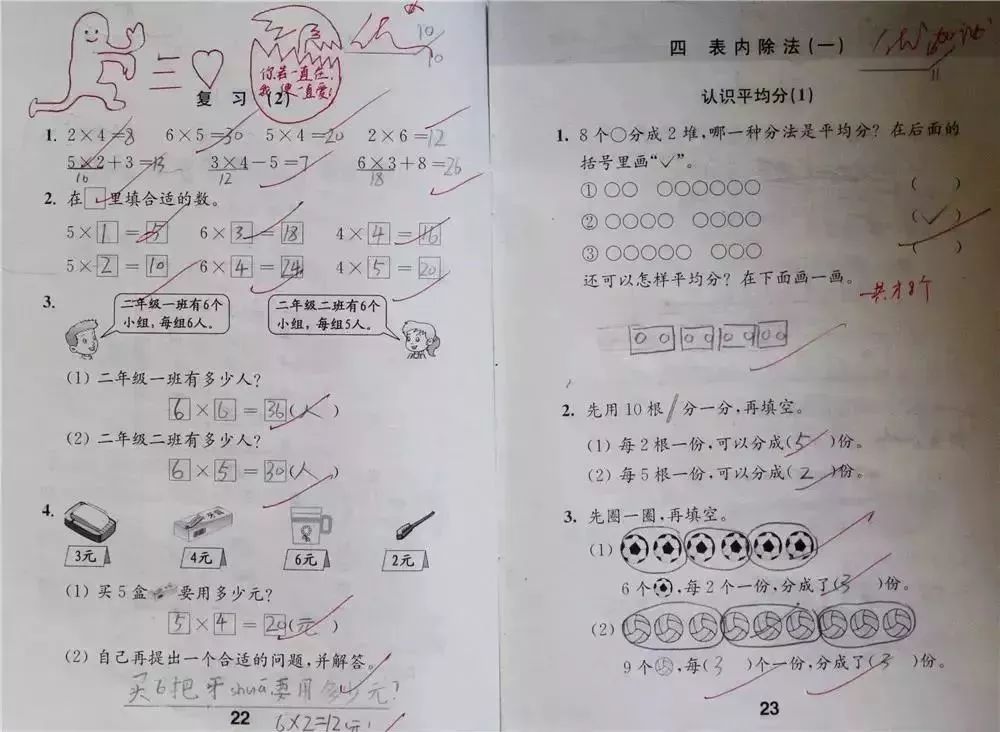 10
10
你若一直佳，
复习(2)
1. 2×4=8 6×5=30 5×4=20 2×6=12
5×2+3=13 3×4-5=7 6×3+8=26
10 12 18
2. 在□里填合适的数。
5×1=5 6×3=18 4×4=16
5×2=10 6×4=24 4×5=20
3.
二年级一班有6个
小组，每组6人。
二年级二班有6个
小组，每组5人。
(1) 二年级一班有多少人？
6×6=36(人)
(2) 二年级二班有多少人？
6×5=30(人)
4.
3元 4元 6元 2元
(1) 买5盒要用多少元？
5×4=20(元)
(2) 自己再提出一个合适的问题，并解答。
买6把牙shuā要用多少元？
6×2=12(元)
22
四 表内除法(一)
11
认识平均分(1)
1. 8个○分成2堆，哪一种分法是平均分？在后面的
括号里画“✓”。
① ○○ ○○○○○○ ( )
② ○○○○ ○○○○ (✓)
③ ○○○○○ ○○○ ( )
还可以怎样平均分？在下面画一画。
一共才8个
2. 先用10根分一分，再填空。
(1) 每2根一份，可以分成(5)份。
(2) 每5根一份，可以分成(2)份。
3. 先圈一圈，再填空。
(1)
6个，每2个一份，分成了(3)份。
(2)
9个，每(3)个一份，分成了(3)份。
23